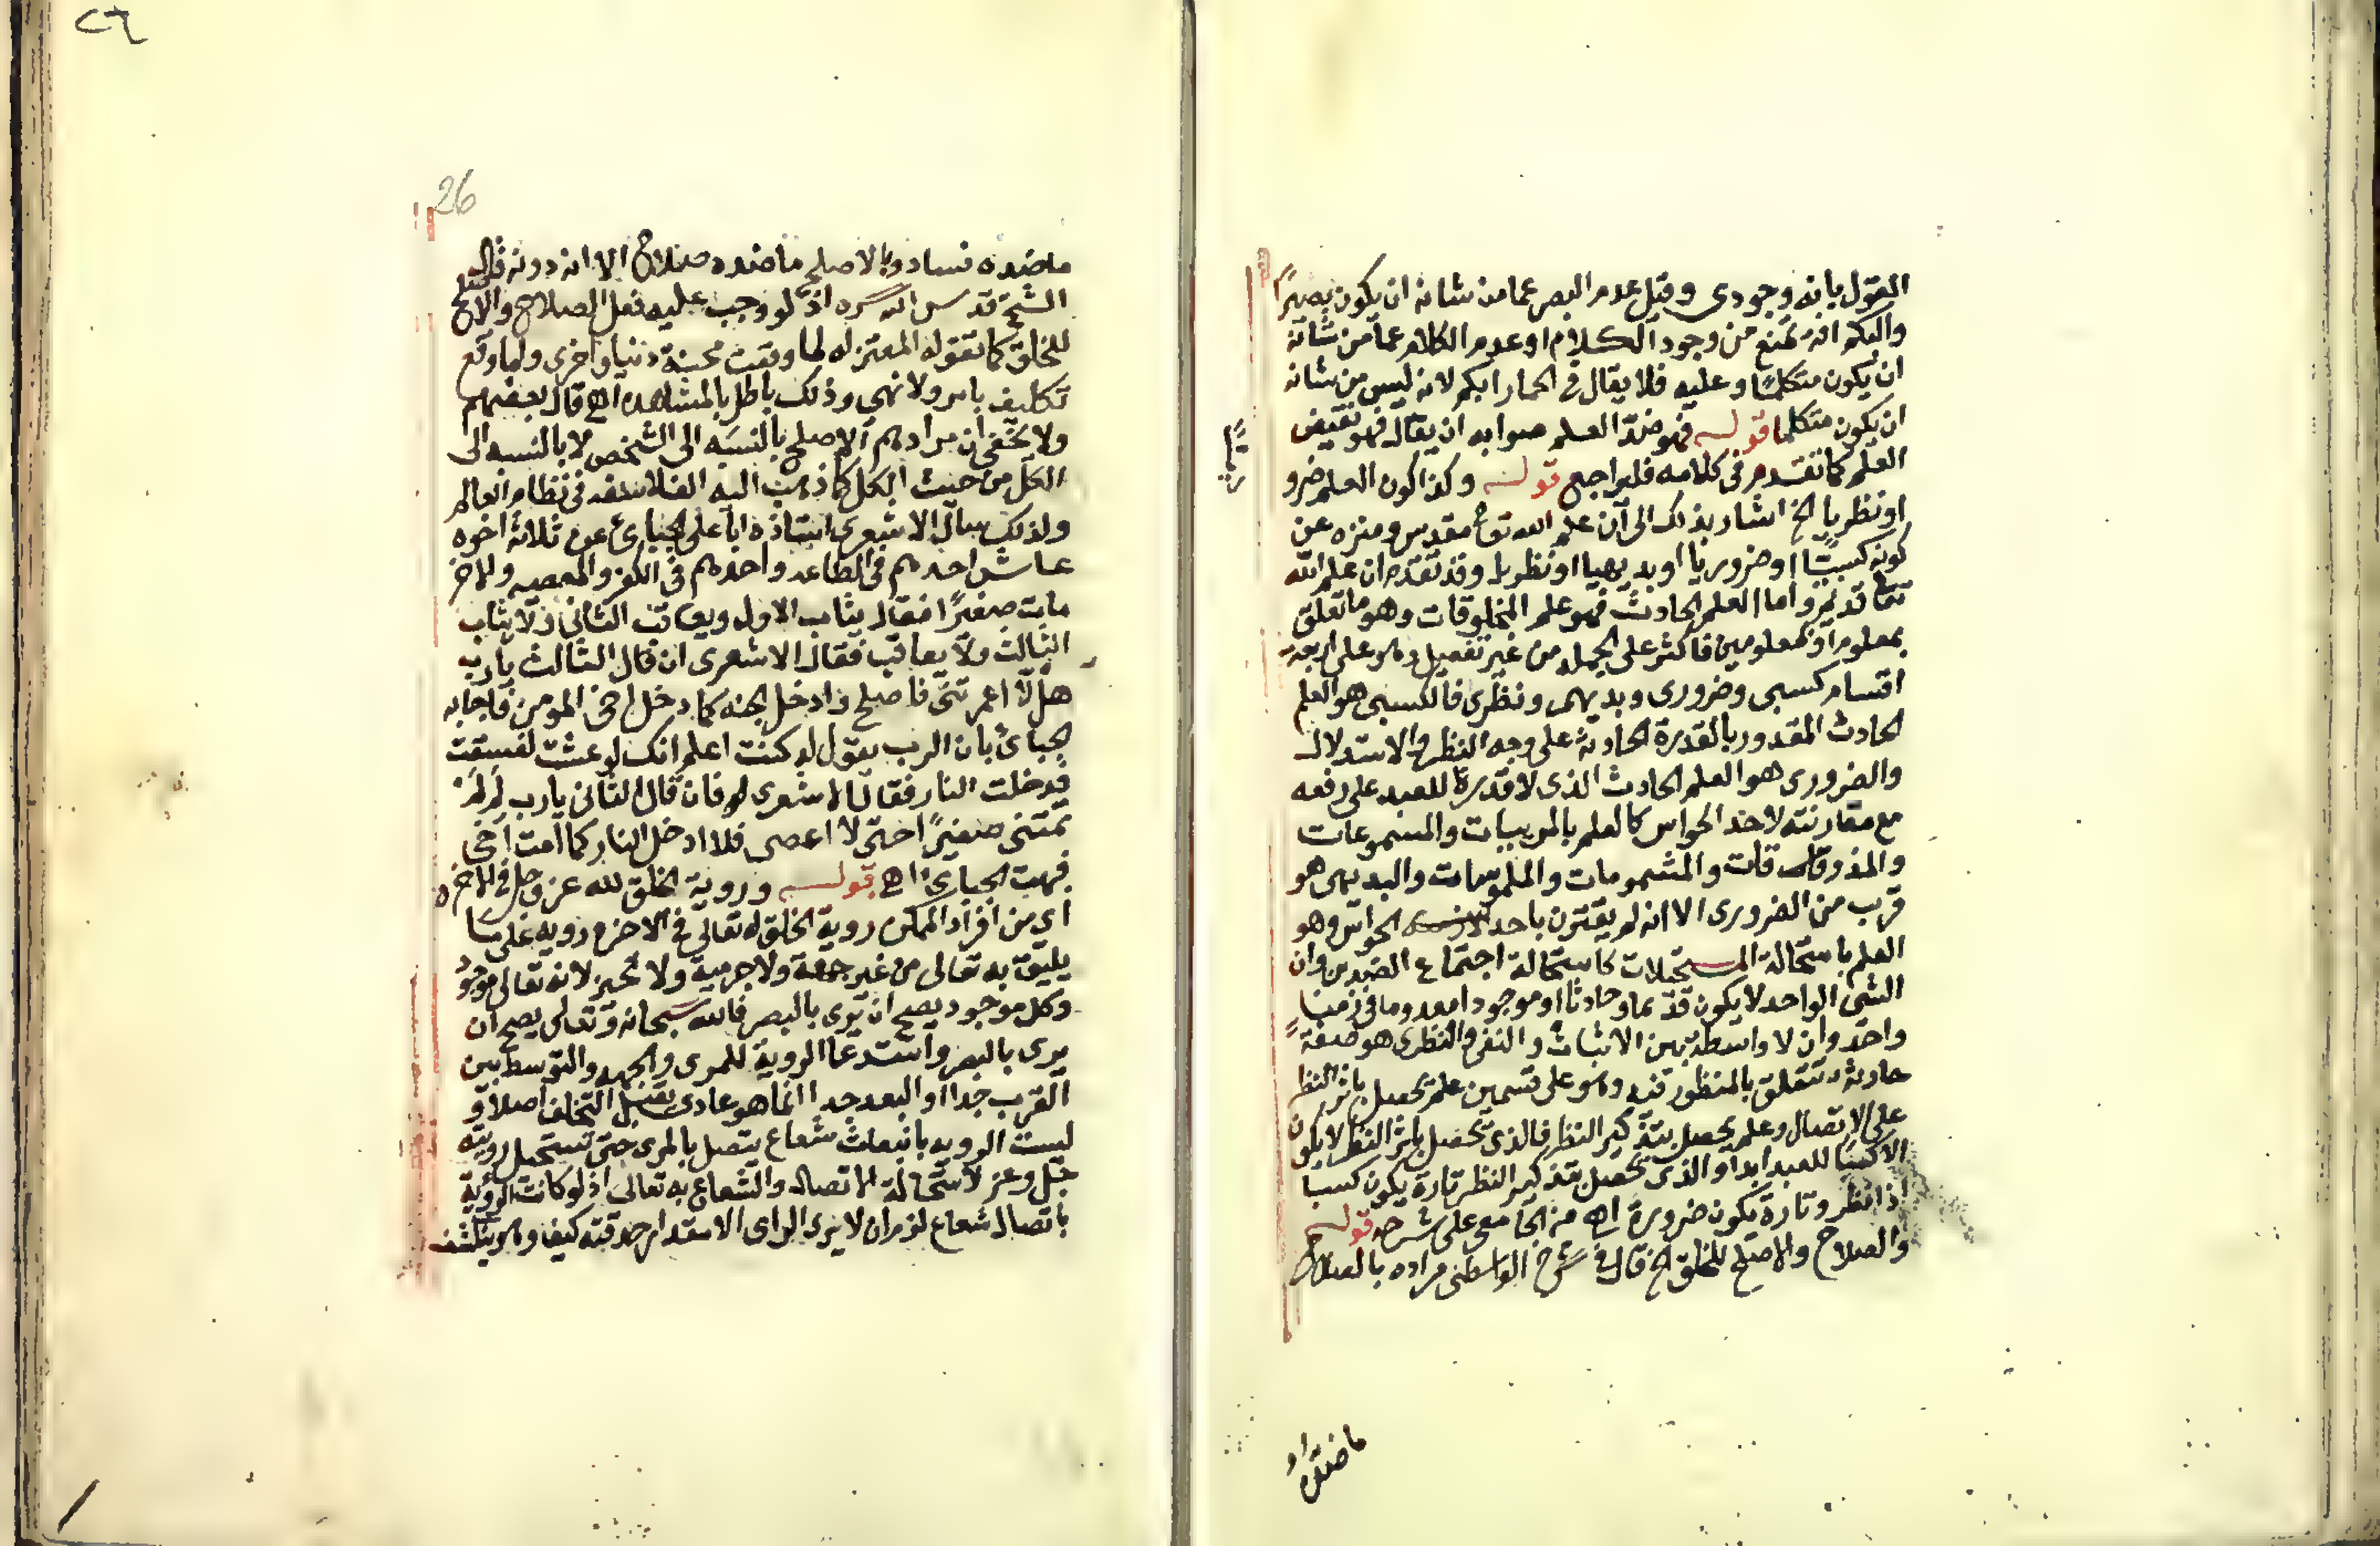 القول بانه وجودي وقيل عدم البصر عما من شانه ان يكون بصيرًا
والبكم انه يمنع من وجود الكلام او عدم الكلام عما من شانه
ان يكون متكلمًا وعليه فلا يقال في الحمار ابكم لانه ليس من شانه
ان يكون متكلما قوله فهو ضد العلم صوابه ان يقال فهو نقيض
العلم كما تقدم في كلامه فليراجع قوله وكذا كون العلم ضرو
ريًّا
او نظريا الخ اشار بذلك الى ان علم الله تعا مقدس ومنزه عن
كونه كسبيًّا او ضروريا او بديهيا او نظريا وقد تقدم ان علم الله
تعا قديم واما العلم الحادث فهو علم المخلوقات وهو ما تعلق
بمعلوم او بمعلومين فاكثر على الجمله من غير تفصيل وهو على اربعة
اقسام كسبي وضروري وبديهى ونظري فالكسبي هو العلم
الحادث المقدور بالقدرة الحادثة على وجه النظر والاستدلال
والضروري هو العلم الحادث الذي لا قدرة للعبد على دفعه
مع مقارنته لاحد الحواس كالعلم بالمرييات والمسموعات
والمذوقات والمشمومات والملموسات والبديهى هو
قرب من الضروري الا انه لم يقترن باحد الحواس وهو
العلم باستحالة المستحيلات كاستحالة اجتماع الضدين وان
الشي الواحد لا يكون قديما وحادثا او موجودا معدوما في زمن
واحد وان لا واسطة بين الاثبات والنفي والنظري هو صفة
حادثة تتعلق بالمنظور فيه وهو على قسمين علم يحصل باثر النظر
على الاتصال وعلم يحصل بتذكير النظر فالذي يحصل باثر النظر لا يكون
الا كسبًا للعبد ابدا والذي يحصل بتذكير النظر تارة يكون كسبا
اذا نظر وتارة يكون ضرورة اه من الجامعي على شرحه قوله
والصلاح والاصلح للخلق الخ قال في شرح الواسطى مراده بالصلاح
ما ضده
26
ما ضده فساد وبالاصلح ما ضده صلاح الا انه دونه قال
الشيخ قدس الله سره اذ لو وجب عليه فعل الصلاح والاصلح
للخلق كما تقوله المعتزله لما وقعت محنة دنيا واخرى ولما وقع
تكليف بامر ولا نهي وذلك باطل بالمشاهده اه قال بعضهم
ولا يخفى ان مرادهم الاصلح بالنسبه الى الشخص لا بالنسبه الى
الكل من حيث الكل كما ذهب اليه الفلاسفه في نظام العالم
ولذلك سال الاشعري استاذه ابا على الجبائ عن ثلاثة اخوه
عاش احدهم في الطاعه واحدهم في الكفر والمعصيه والاخر
مات صغيرًا فقال يثاب الاول ويعاقب الثاني ولا يثاب
الثالث ولا يعاقب فقال الاشعري ان قال الثالث يا رب
هلّا اعمرتني فاصلح فادخل الجنه كما دخل اخي المومن فاجابه
الجبائ بان الرب يقول له كنت اعلم انك لو عشت لفسقت
فدخلت النار فقال الاشعري له فان قال الثاني يا رب لِمَ لَمْ
تمتني صغيرًا حتى لا اعصى فلا ادخل النار كما امت اخي
فبهت الجبائي اه قوله وروية الخلق لله عز وجل في الاخره
اي من افراد الممكن روية الخلق له تعالى في الاخره رويه على ما
يليق به تعالى من غير جهة ولا جرمية ولا تحيز لانه تعالى موجود
وكل موجود يصح ان يرى بالبصر فالله سبحانه وتعالى يصح ان
يرى بالبصر واستدعا الروية للمرى والجهه والتوسط بين
القرب جدا او البعد جدا انما هو عادي يقبل التخلف اصلا و
ليست الرويه بانبعاث شعاع يتصل بالمرى حتى تستحيل رويته
جل وعز لاستحالة الاتصال والشعاع به تعالى اذ لو كانت الروية
باتصال شعاع لزم ان لا يرى الراى الا مقدار حدقته كيف وهو ينكشف